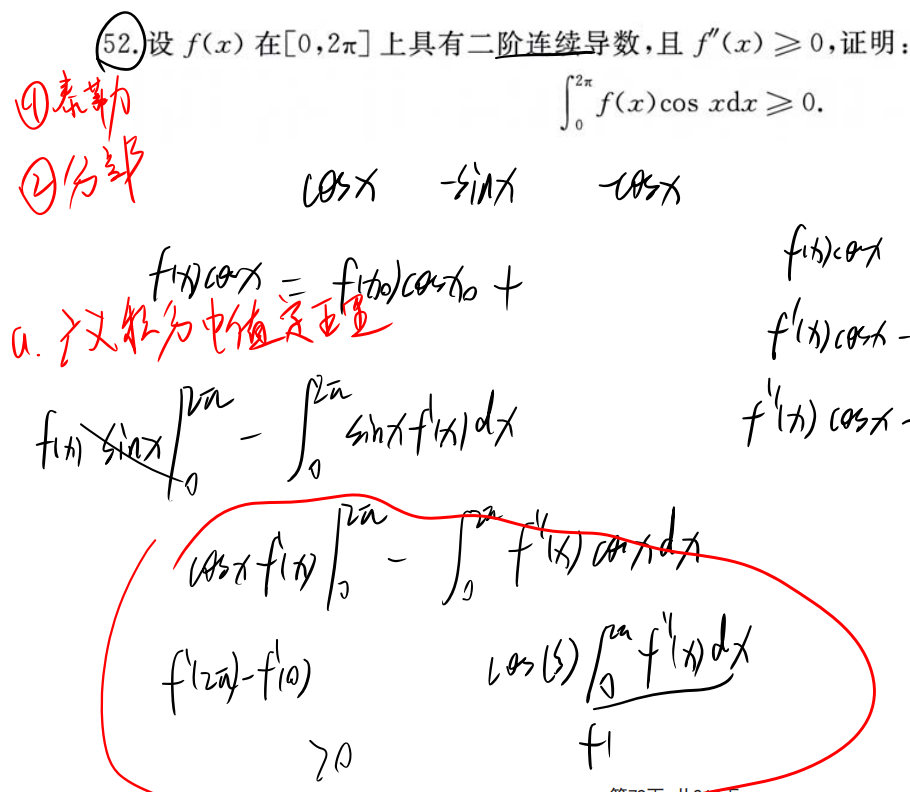 52. 设 f(x) 在[0,2π]上具有二阶连续导数,且 f″(x)≥0,证明:
∫₀^{2π} f(x)cos xdx≥0.
①泰勒
②分部
cosx -sinx -cosx
f(x)cosx = f(x₀)cosx₀ +
f(x)cosx
f'(x)cosx -
f''(x)cosx -
a. 广义积分中值定理
f(x) sinx |₀^{2π} - ∫₀^{2π} sinx f'(x) dx
cosx f'(x) |₀^{2π} - ∫₀^{2π} f''(x) cosx dx
f'(2π)-f'(0) cos(ξ) ∫₀^{2π} f''(x) dx
>0 f'